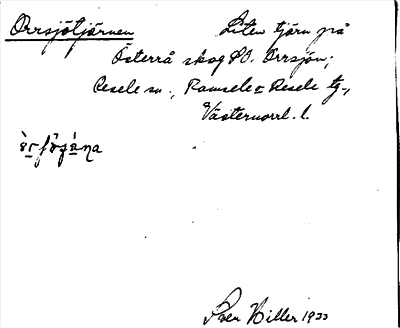 Orrsjötjärnen Liten tjärn på
Österrå skog SO. Orrsjön;
Resele sn., Ramsele o Resele tg.,
Västernorrl. l.
Sven Hiller 1933